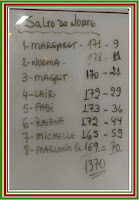 SALTO DO NORTE
1- MARGARET - 171 - 9
2- NORMA - 178 - 11
3- MAGRIT 170 - 21
4- LAIR 179 - 29
5- FABI 173 - 36
6- RAIANA 172 - 44
7- MICHELLE 165 - 59
8- MARLENE 169 = 70
1370